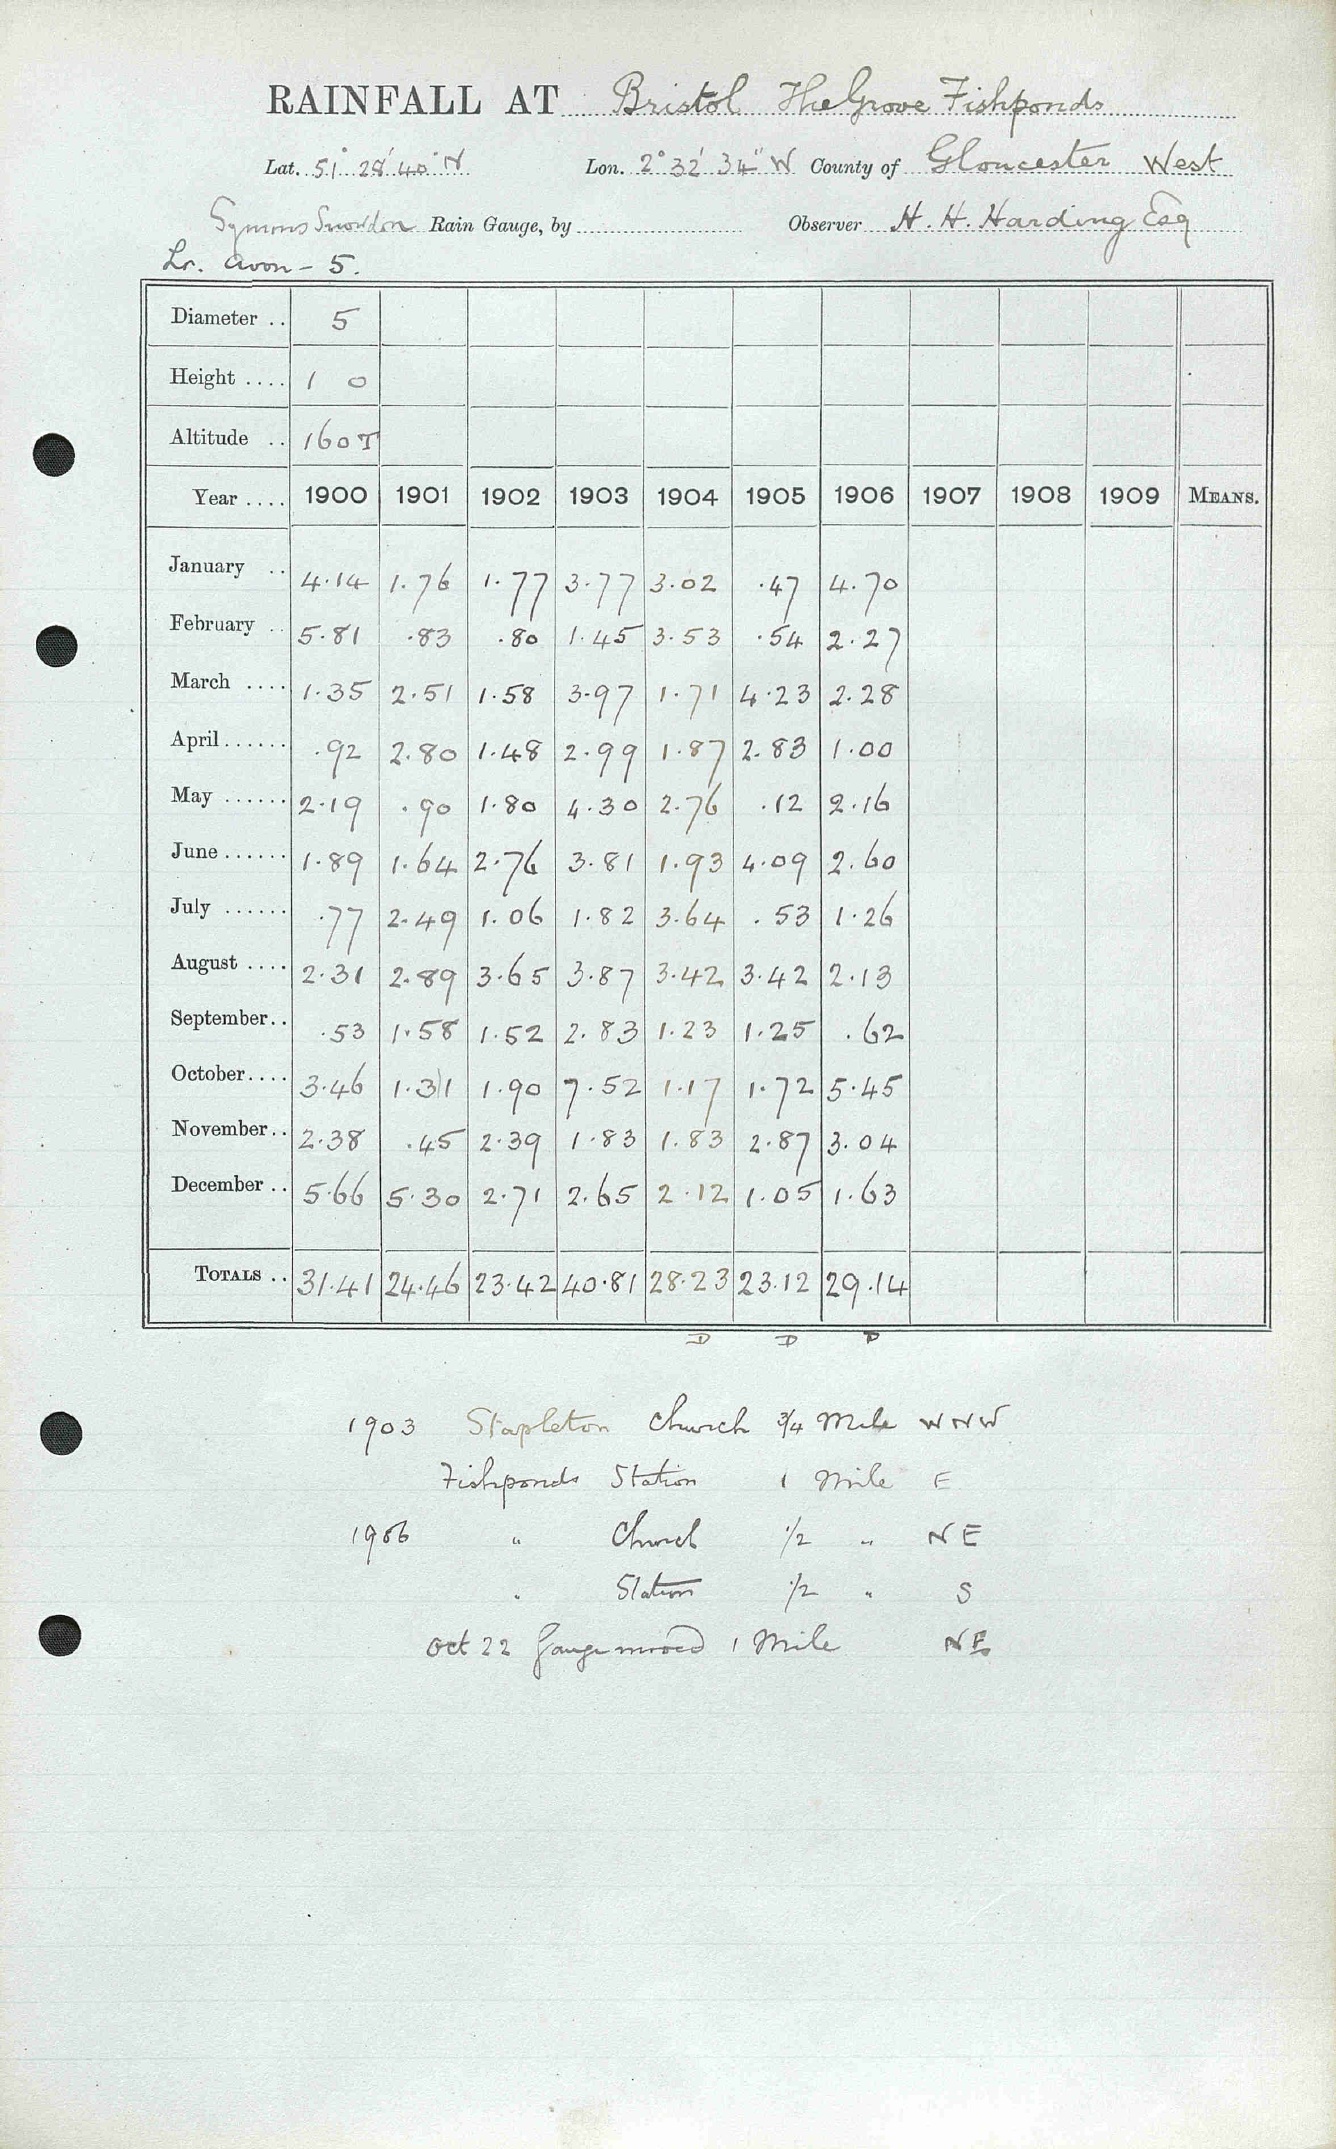 RAINFALL AT Bristol The Grove Fishponds
Lat. 51° 28' 40" N Lon. 2° 32' 34" W County of Gloucester West
Symons Snowdon Rain Gauge, by Observer H. H. Harding Esq
Lr. Avon - 5.
Diameter .. 5
Height .... 1 0
Altitude .. 160T
Year .... 1900 1901 1902 1903 1904 1905 1906 1907 1908 1909 MEANS.
January .. 4.14 1.76 1.77 3.77 3.02 .47 4.70
February .. 5.81 .83 .80 1.45 3.53 .54 2.27
March .... 1.35 2.51 1.58 3.97 1.71 4.23 2.28
April...... .92 2.80 1.48 2.99 1.87 2.83 1.00
May ...... 2.19 .90 1.80 4.30 2.76 .12 2.16
June...... 1.89 1.64 2.76 3.81 1.93 4.09 2.60
July ...... .77 2.49 1.06 1.82 3.64 .53 1.26
August .... 2.31 2.89 3.65 3.87 3.42 3.42 2.13
September.. .53 1.58 1.52 2.83 1.23 1.25 .62
October.... 3.46 1.31 1.90 7.52 1.17 1.72 5.45
November.. 2.38 .45 2.39 1.83 1.83 2.87 3.04
December .. 5.66 5.30 2.71 2.65 2.12 1.05 1.63
TOTALS .. 31.41 24.46 23.42 40.81 28.23 23.12 29.14
D D D
1903 Stapleton Church 3/4 Mile WNW
Fishponds Station 1 Mile E
1906 " Church 1/2 " NE
" Station 1/2 " S
Oct 22 Gauge moved 1 Mile NE